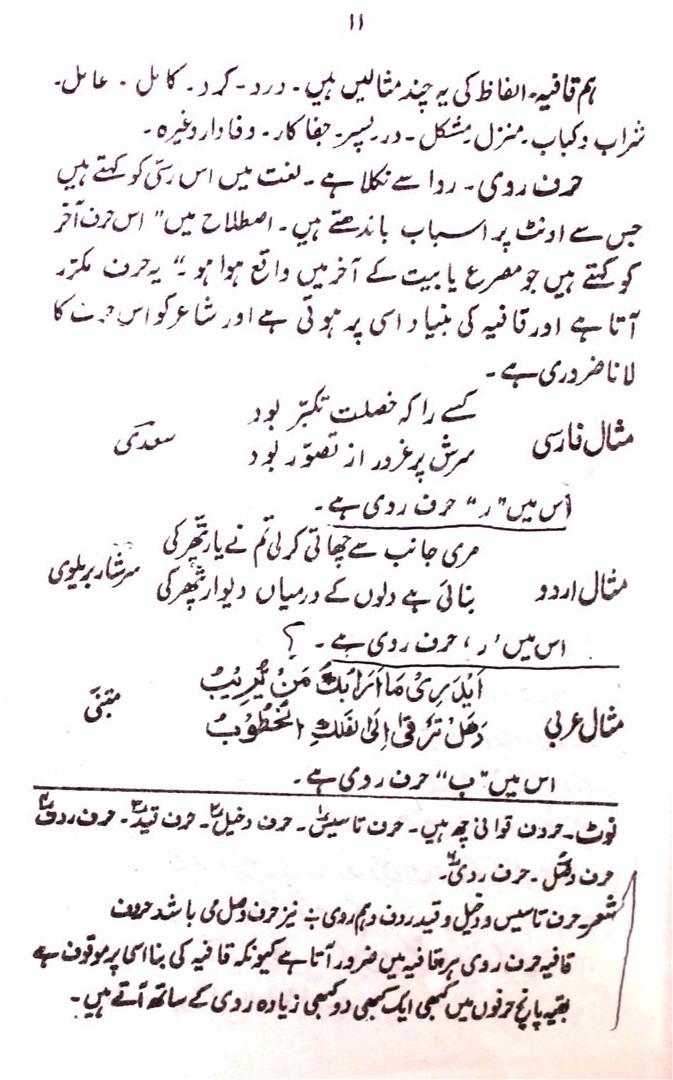 ۱۱
ہم قافیہ الفاظ کی یہ چند مثالیں ہیں۔ درد۔ گرد۔ کامل۔ عامل۔
شراب و کباب۔ منزل۔ مشکل۔ در۔ پسر۔ جفا کار۔ وفادار وغیرہ۔
حرف روی۔ روا سے نکلا ہے۔ لغت میں اس رسّی کو کہتے ہیں
جس سے اونٹ پر اسباب باندھتے ہیں۔ اصطلاح میں "اس حرف آخر
کو کہتے ہیں جو مصرع یا بیت کے آخر میں واقع ہوا ہو۔" یہ حرف مکرّر
آتا ہے اور قافیہ کی بنیاد اسی پر ہوتی ہے اور شاعر کو اس حرف کا
لانا ضروری ہے۔
کسے را کہ خصلت تکبّر بود
مثال فارسی سعدی
سرش پر غرور از تصوّر بود
اس میں "ر" حرف روی ہے۔
مری جانب سے چھاتی کر لی تم نے یار پتھر کی
مثال اردو سرشار بریلوی
بنائی ہے دلوں کے درمیاں دیوار پتھر کی
اس میں 'ر' حرف روی ہے۔ ؟
اَیَدْرِیْ مَا اَرَابَكَ مَنْ یُّرِیْبُ
مثال عربی متنبّی
وَهَلْ تَرْقیٰ اِلیٰ فَلَكِ الْخُطُوْبُ
اس میں "ب" حرف روی ہے۔
نوٹ۔ حروف قوافی چھ ہیں۔ حرف تاسیس۱۔ حرف دخیل۲۔ حرف قید۳۔ حرف ردف۴
حرف وصل۵۔ حرف روی۶۔
شعر۔ حرف تاسیس و دخیل و قید ردف و ہم روی ÷ نیز حرف وصل می باشد حروف
قافیہ حرف روی ہر قافیہ میں ضرور آتا ہے کیونکہ قافیہ کی بنا اسی پر موقوف ہے
بقیہ پانچ حرفوں میں کبھی ایک کبھی دو کبھی زیادہ روی کے ساتھ آتے ہیں۔